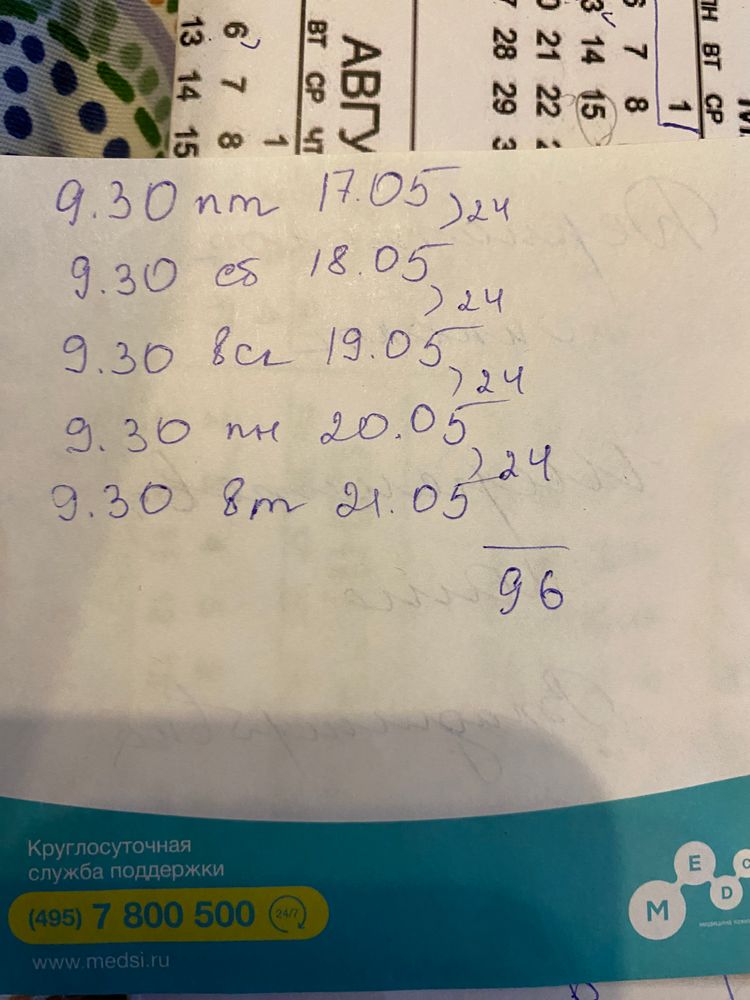 АВГУ
ВТ СР ЧТ
1
6 7 8
13 14 15
ПН ВТ СР
1
6 7 8
13 14 15
20 21 22
27 28 29
9.30 пт 17.05
24
9.30 сб 18.05
24
9.30 вск 19.05
24
9.30 пн 20.05
24
9.30 вт 21.05
96
Круглосуточная
служба поддержки
(495) 7 800 500 24/7
www.medsi.ru
M E D